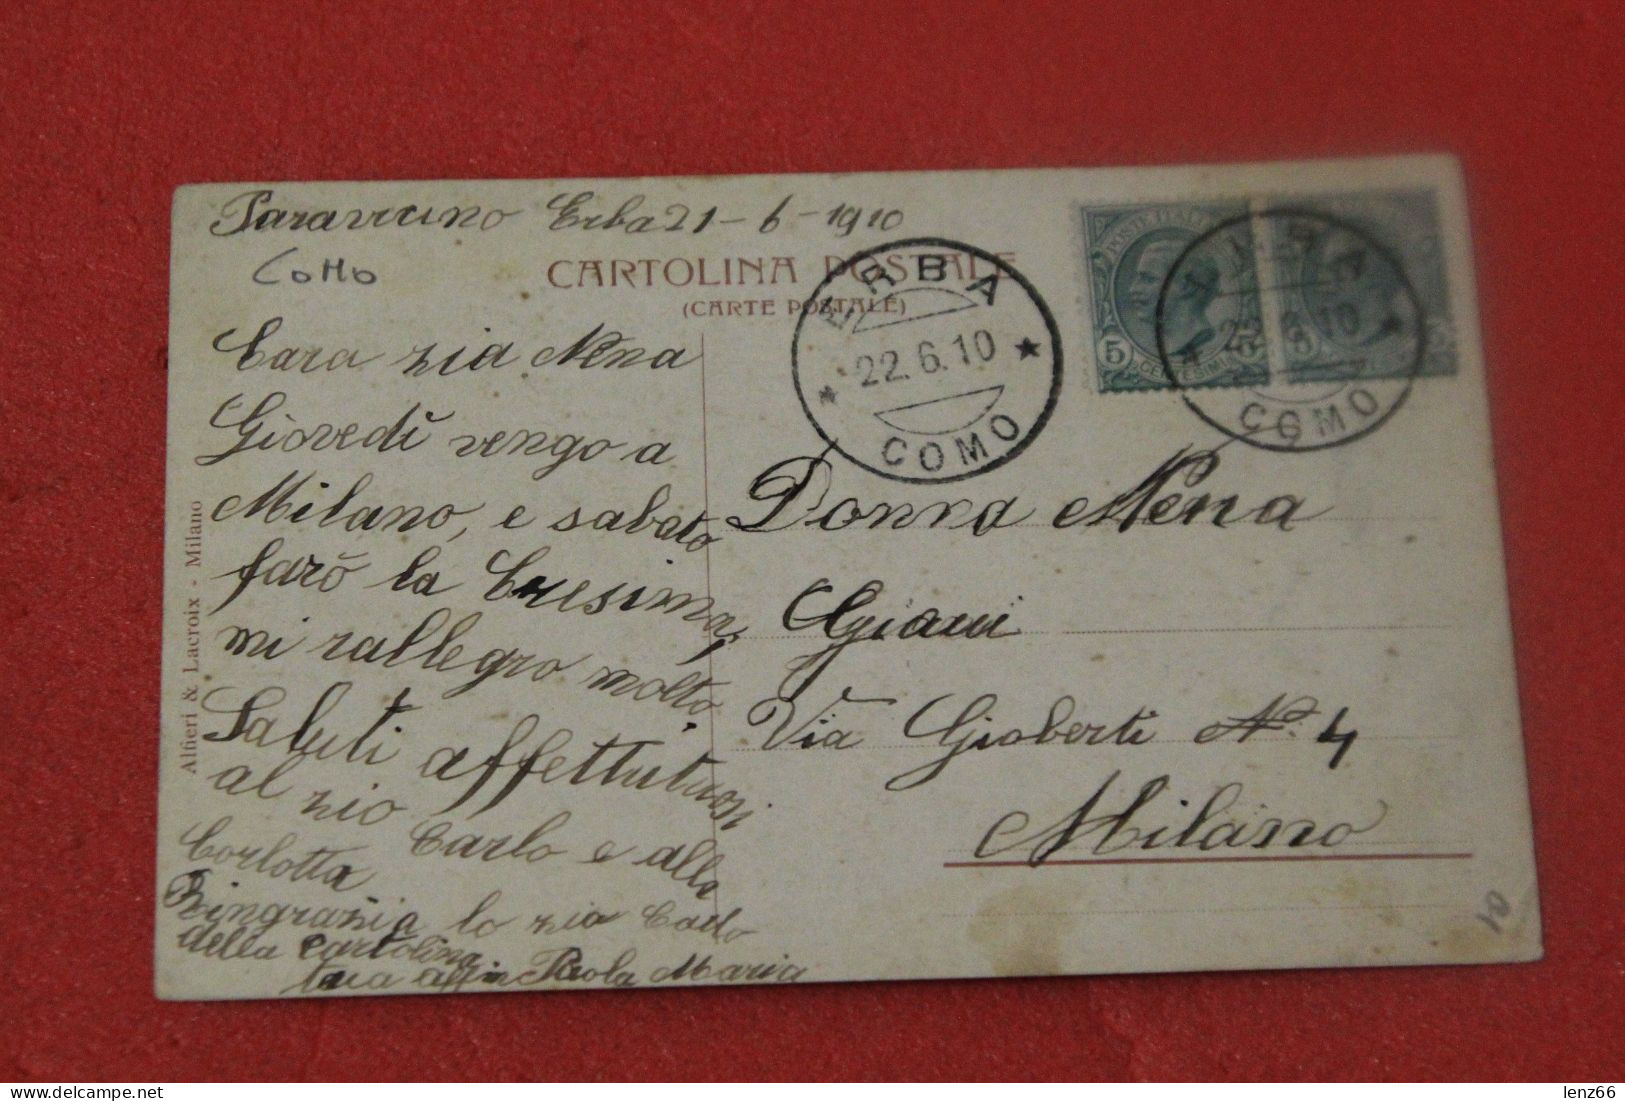 Paravicino Erba 21-6-1910
Como
CARTOLINA POSTALE
(CARTE POSTALE)
ERBA
22.6.10
COMO
POSTE ITALIANE
5
CENTESIMI
5
ERBA
22.6.10
COMO
Cara zia Nena
Giovedì vengo a
Milano, e sabato
farò la Cresima,
mi rallegro molto.
Saluti affettuosi
al zio Carlo e alla
Corlotta
Ringrazia lo zio Carlo
della cartolina
tua affma Paola Maria
Donna Nena
Giani
Via Gioberti No. 4
Milano
Alfieri & Lacroix - Milano
lenz66